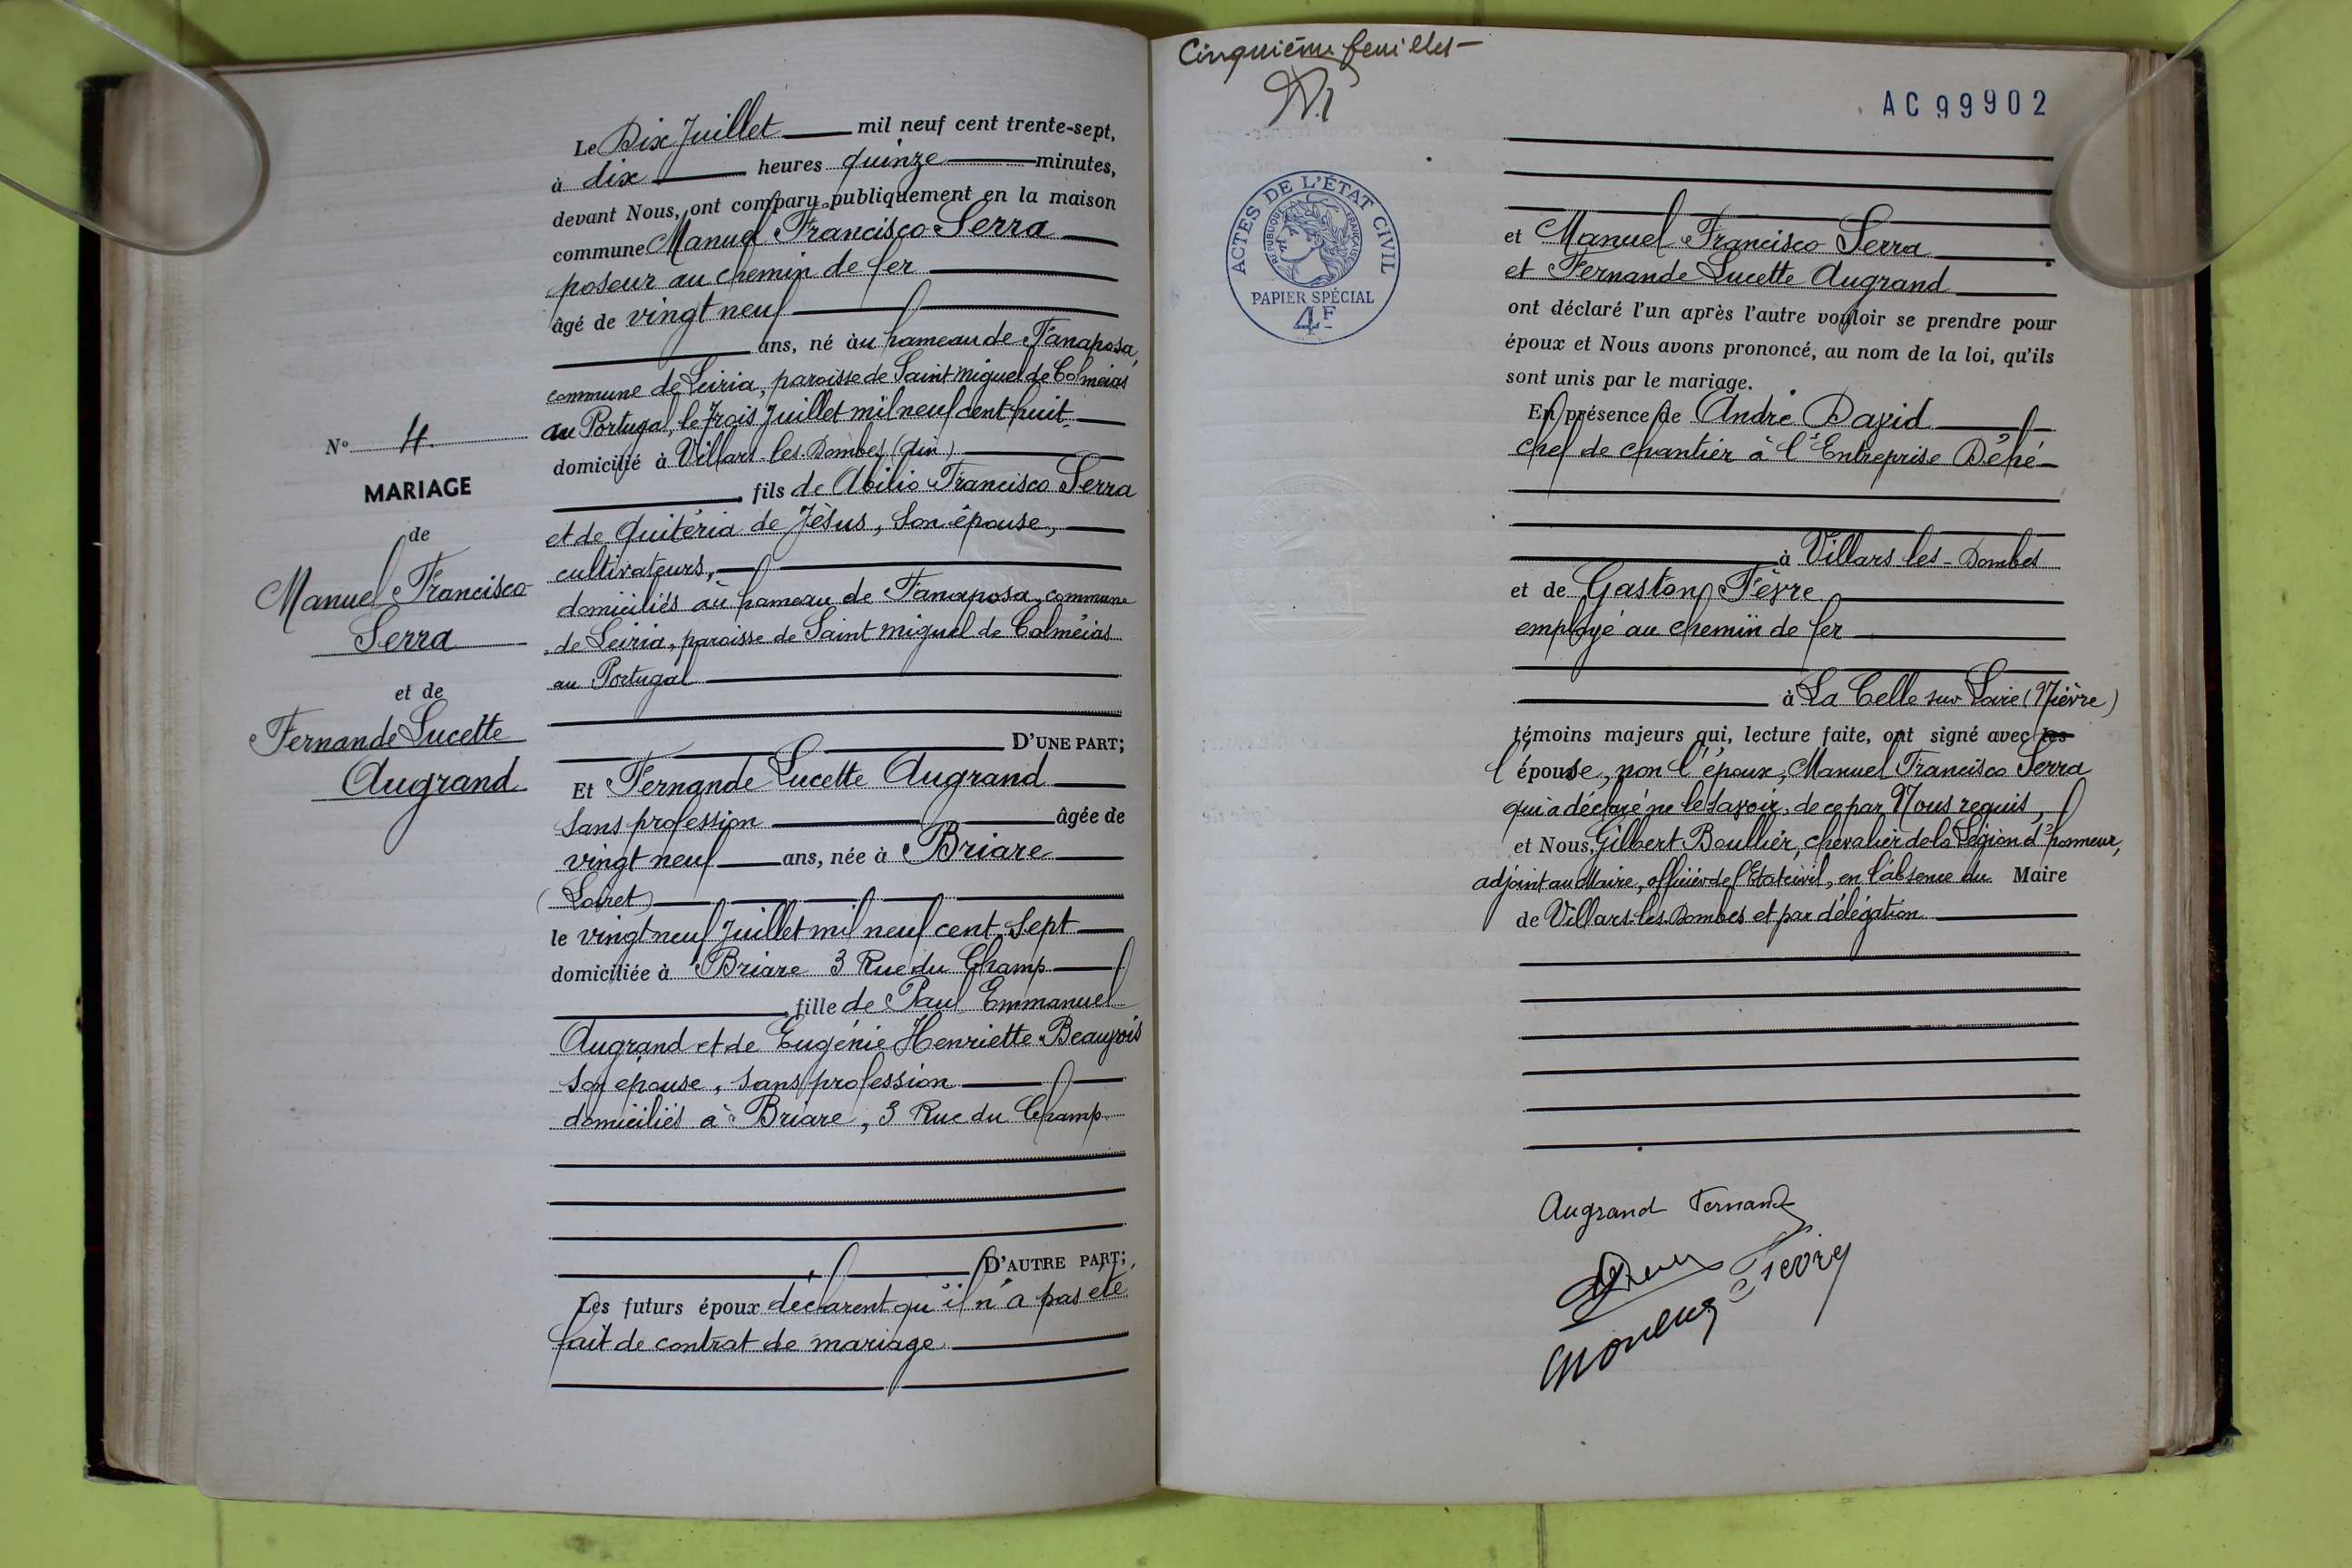 Le Dix Juillet mil neuf cent trente-sept,
à dix heures quinze minutes,
devant Nous, ont comparu publiquement en la maison
commune Manuel Francisco Serra
poseur au chemin de fer
âgé de vingt neuf
ans, né au hameau de Fanaposa,
commune de Leiria, paroisse de Saint Miguel de Colmeias
au Portugal, le trois Juillet mil neuf cent huit
domicilié à Villars-les-Dombes (Ain)
fils de Abilio Francisco Serra
et de Quitéria de Jésus, son épouse,
cultivateurs,
domiciliés au hameau de Fanaposa, commune
de Leiria, paroisse de Saint Miguel de Colméias
au Portugal
D'UNE PART;
Et Fernande Lucette Augrand
sans profession âgée de
vingt neuf ans, née à Briare
(Loiret)
le vingt neuf Juillet mil neuf cent sept
domiciliée à Briare 3 Rue du Champ
fille de Paul Emmanuel
Augrand et de Eugénie Henriette Beauvois
son épouse, sans profession
domiciliés à Briare, 3 Rue du Champ
D'AUTRE PART;
Les futurs époux déclarent qu'il n'a pas été
fait de contrat de mariage
N° 4.
MARIAGE
de
Manuel Francisco
Serra
et de
Fernande Lucette
Augrand
Cinquième feuillet
AC 99902
ACTES DE L'ÉTAT CIVIL
RÉPUBLIQUE FRANÇAISE
PAPIER SPÉCIAL
4F
et Manuel Francisco Serra
et Fernande Lucette Augrand
ont déclaré l'un après l'autre vouloir se prendre pour
époux et Nous avons prononcé, au nom de la loi, qu'ils
sont unis par le mariage.
En présence de André David
chef de chantier à l'Entreprise Déhé
à Villars les-Dombes
et de Gaston Fèvre
employé au chemin de fer
à La Celle sur Loire (Nièvre)
témoins majeurs qui, lecture faite, ont signé avec les
l'épouse, non l'époux, Manuel Francisco Serra
qui a déclaré ne le savoir, de ce par Nous requis,
et Nous, Gilbert Boullier, chevalier de la Légion d'honneur,
adjoint au Maire, officier de l'Etat civil, en l'absence du Maire
de Villars-les-Dombes et par délégation
Augrand Fernande